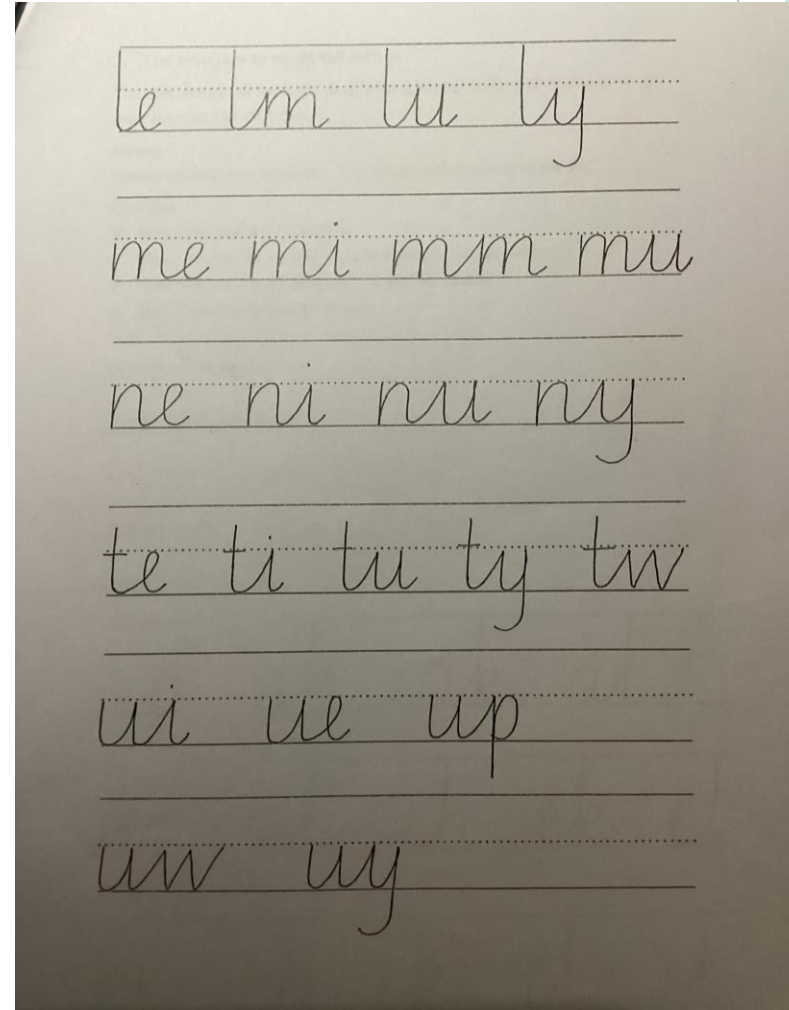 le lm lu ly
me mi mm mu
ne ni nu ny
te ti tu ty tw
ui ue up
uw uy